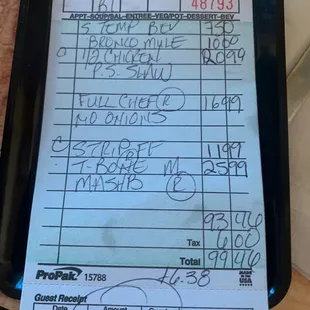 48793
APPT-SOUP/SAL-ENTREE-VEG/POT-DESSERT-BEV
S TEMP BEV 750
BRONCO MULE 1000
1/2 CHICKEN 2099
P.S. SLAW
FULL CHEF R 1699
NO ONIONS
C STRIP OFF 1199
T-BONE M 2599
MASHB R
93 46
Tax 6 00
Total 99 46
ProPak 15788 MADE IN USA
6.38
Guest Receipt
Date Amount